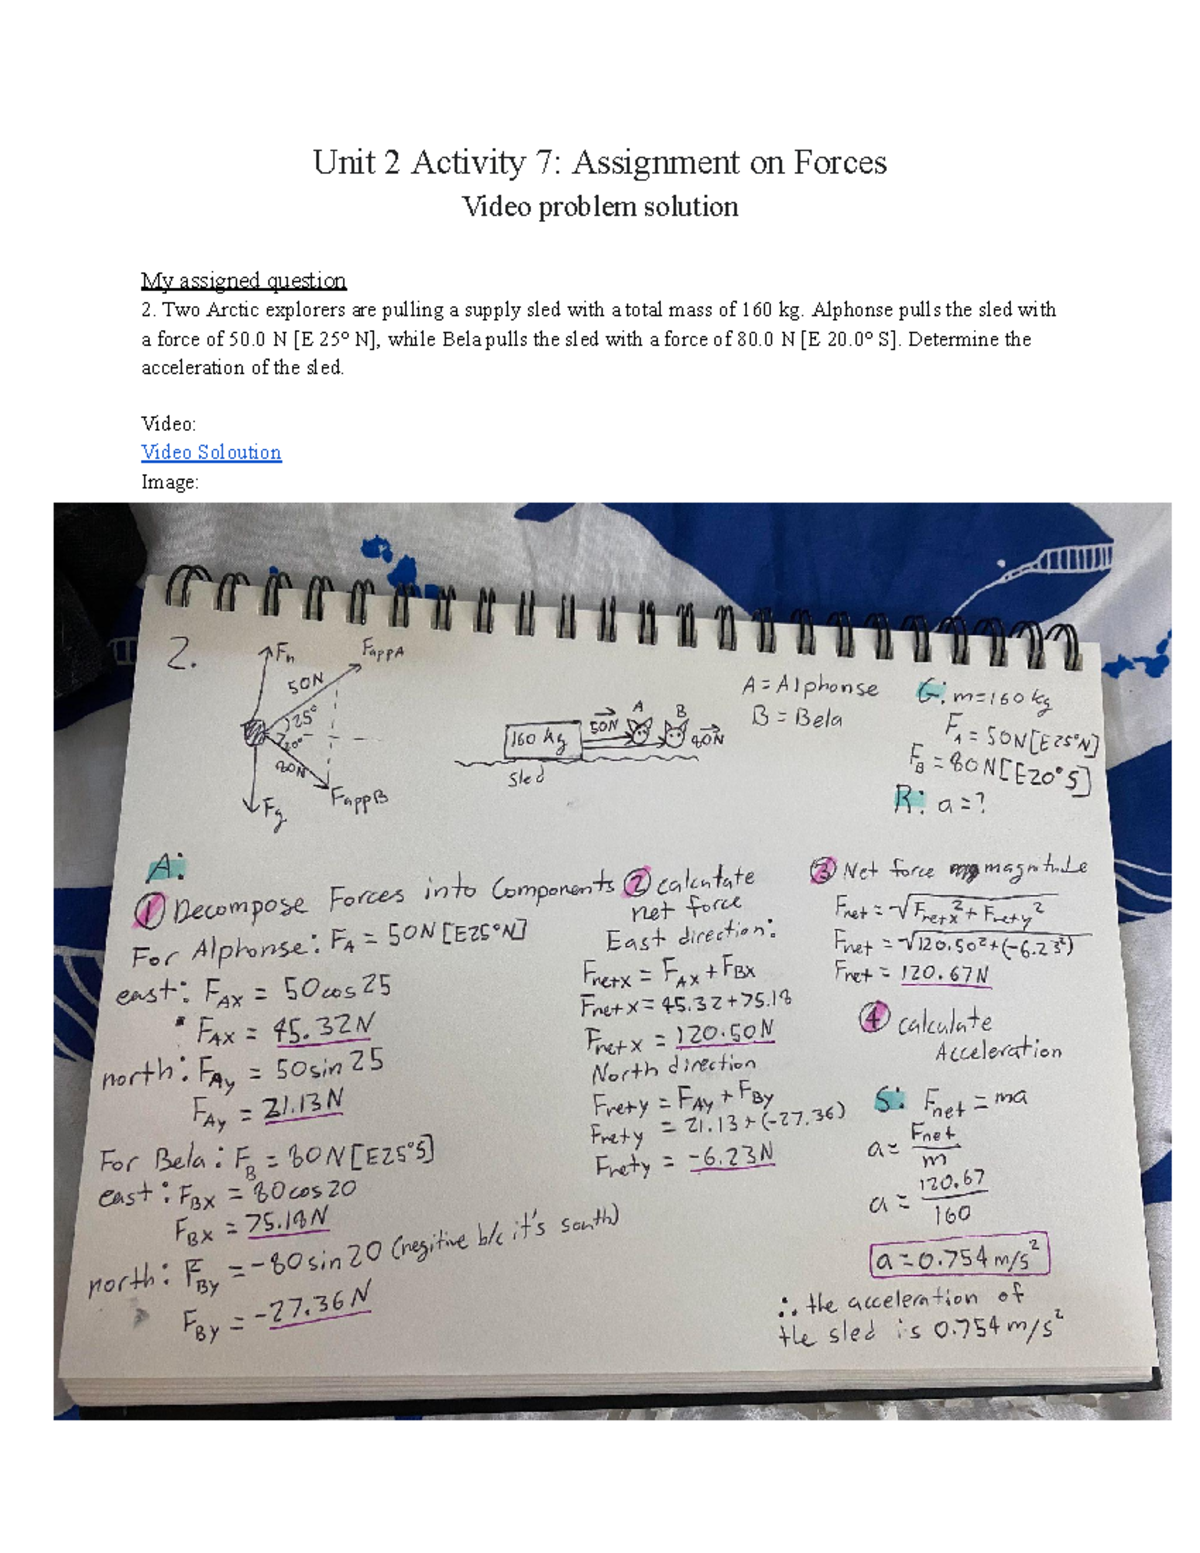 Unit 2 Activity 7: Assignment on Forces
Video problem solution
My assigned question
2. Two Arctic explorers are pulling a supply sled with a total mass of 160 kg. Alphonse pulls the sled with
a force of 50.0 N [E 25° N], while Bela pulls the sled with a force of 80.0 N [E 20.0° S]. Determine the
acceleration of the sled.
Video:
Video Soloution
Image:
2.
Fn
FappA
50N
25°
20°
80N
FappB
Fg
160 kg
50N
A
B
80N
Sled
A = Alphonse
B = Bela
G: m=160 kg
F_A = 50N[E25°N]
F_B = 80N[E20°S]
R: a=?
A:
① Decompose Forces into Components
For Alphonse: F_A = 50N[E25°N]
east: F_Ax = 50cos25
F_Ax = 45.32N
north: F_Ay = 50sin25
F_Ay = 21.13N
For Bela: F_B = 80N[E25°S]
east: F_Bx = 80cos20
F_Bx = 75.18N
north: F_By = -80sin20 (negitive b/c it's south)
F_By = -27.36N
② calculate
net force
East direction:
Fnetx = F_Ax + F_Bx
Fnetx = 45.32+75.18
Fnetx = 120.50N
North direction
Fnety = F_Ay + F_By
Fnety = 21.13+(-27.36)
Fnety = -6.23N
③ Net force magnitude
Fnet = √Fnetx²+Fnety²
Fnet = √120.50²+(-6.23²)
Fnet = 120.67N
④ calculate
Acceleration
S: Fnet = ma
a = Fnet/m
a = 120.67/160
a=0.754 m/s²
∴ the acceleration of
the sled is 0.754 m/s²